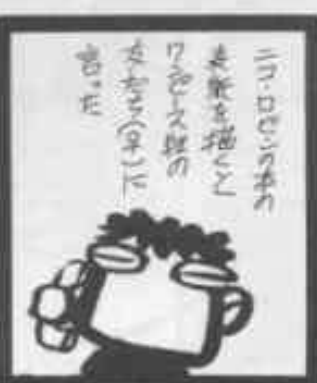 ニコ・ロビンの本の
表紙を描くと
ワンピース班の
友だち(♀)に
言った